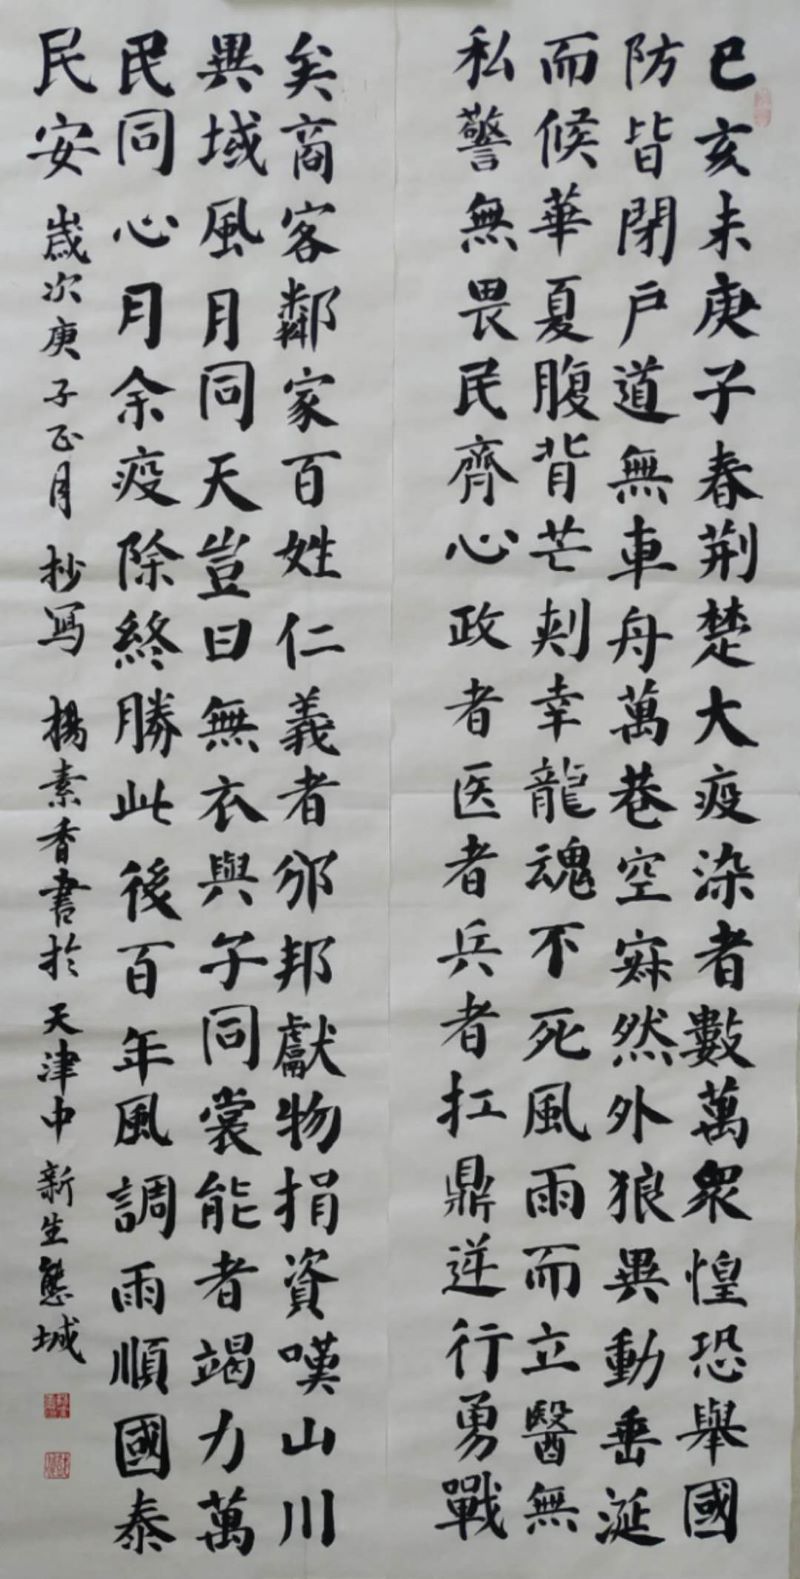 已亥末庚子春荆楚大疫染者數萬衆惶恐舉國
防皆閉户道無車舟萬巷空寂然外狼異動垂涎
而候華夏腹背芒刺幸龍魂不死風雨而立醫無
私警無畏民齊心政者医者兵者扛鼎逆行勇戰
矣商客鄰家百姓仁義者邠邦獻物捐資嘆山川
異域風月同天豈曰無衣與子同裳能者竭力萬
民同心月余疫除終勝此後百年風調雨順國泰
民安 歲次庚子正月 抄写 楊素香書於天津中新生態城